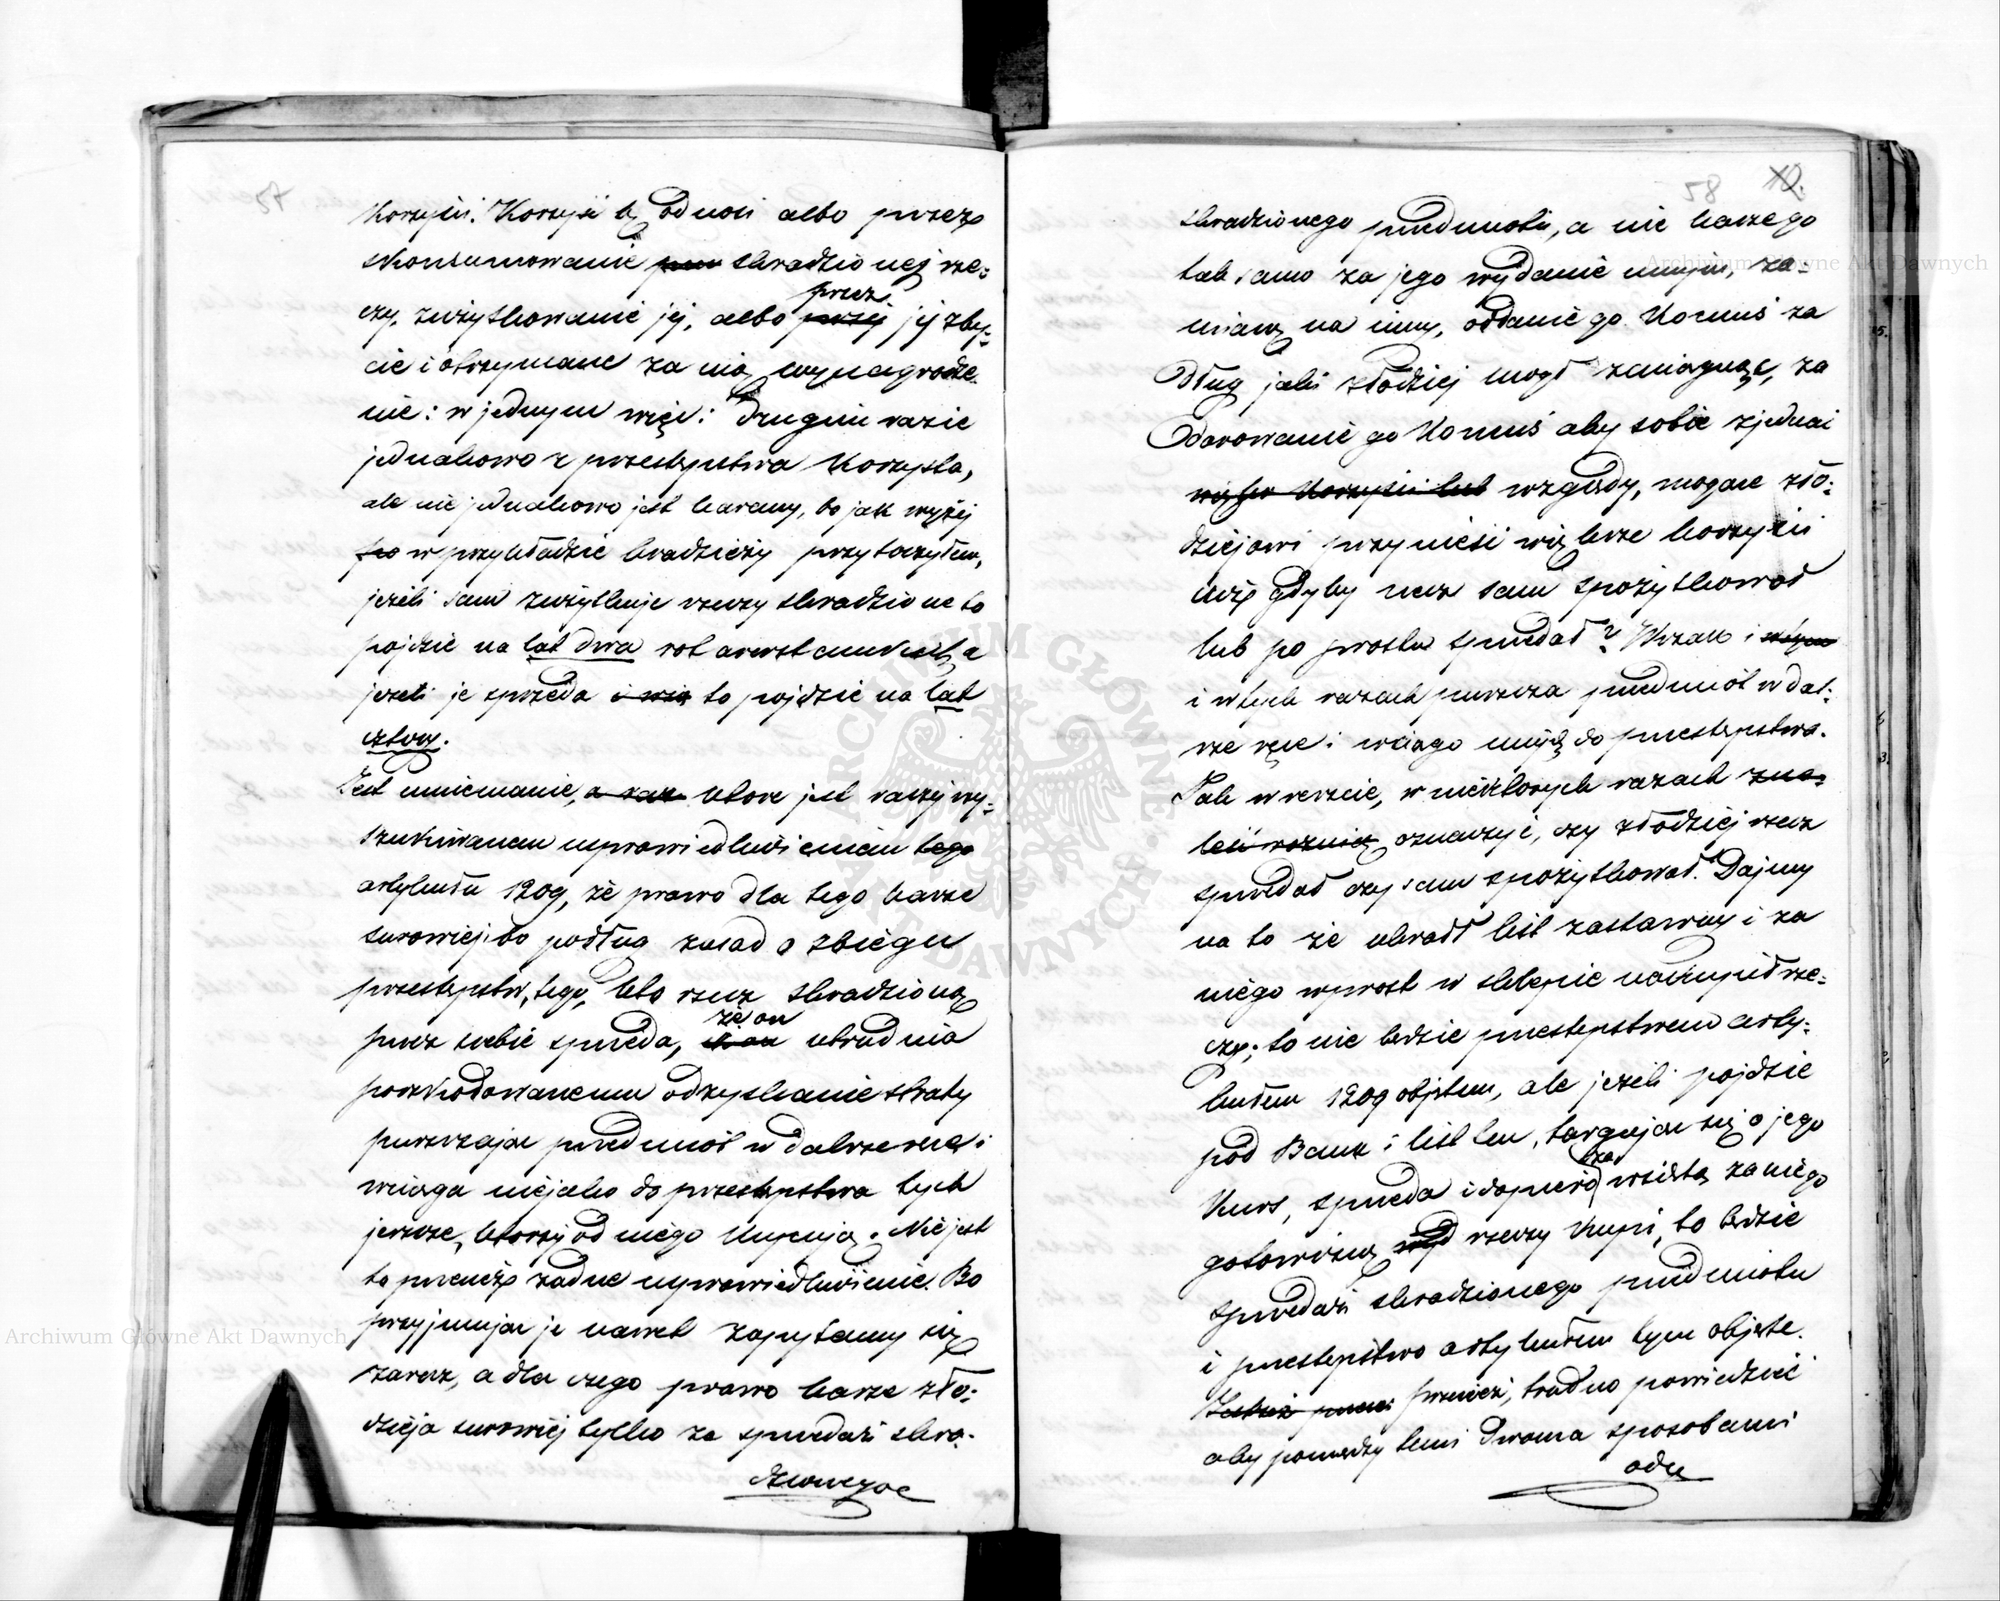 57
korzyści. Korzyść tę odnosi albo przez
skonsumowanie skradzionej rze-
czy, zużytkowanie jej, albo przez jej zby-
cie i otrzymane za nią wynagrodze-
nie: w jednym więc i drugim razie
jednakowo z przestępstwa korzysta,
ale nie jednakowo jest karany, bo jak wyżej
w przykładzie kradzieży przytoczyłem,
jeżeli sam zużytkuje rzeczy skradzione to
pojdzie na lat dwa rot aresztanckich a
jeżeli je sprzeda to pojdzie na lat
cztery.
Jest mniemanie, które jest raczej wy-
szukiwanem usprawiedliwieniem tego
artykułu 1209, że prawo dla tego karze
surowiej, bo podług zasad o zbiegu
przestępstw, tego, kto rzecz skradzioną
przez siebie sprzeda, że on utrudnia
poszkodowanemu odzyskanie straty
puszczając przedmiot w dalsze ręce i
wciąga niejako do przestępstwa tych
jeszcze, którzy od niego kupują. Nie jest
to przecież żadne usprawiedliwienie. Bo
przyjmując je nawet zapytamy się
zaraz, a dla czego prawo karze zło-
dzieja surowiej tylko za sprzedaż skra-
dzionego
58 10.
skradzionego przedmiotu, a nie karze go
tak samo za jego wydanie innym, za-
mianę na inny, oddanie go komuś za
dług jaki złodziej mógł zaciągnąć, za
darowanie go komuś aby sobie zjednać
większe korzyści lub względy, mogące zło-
dziejowi przynieść większe korzyści
niż gdyby rzecz sam spożytkował
lub po prostu sprzedał? Wszak i
i w tych razach puszcza przedmiot w dal-
sze ręce i wciąga innych do przestępstwa.
Jak wreszcie, w niektórych razach
oznaczyć, czy złodziej rzecz
sprzedał czy sam spożytkował. Dajmy
na to że ukradł list zastawny i za
niego wprost w sklepie nakupił rze-
czy; to nie będzie przestępstwem arty-
kułem 1209 objętem, ale jeżeli pojdzie
pod Bank i list ten, targując się o jego
kurs, sprzeda i dopiero za wziętą za niego
gotowiznę rzeczy kupi, to będzie
sprzedaż skradzionego przedmiotu
i przestępstwo artykułem tym objęte.
przecież, trudno powiedzieć
aby pomiędzy temi dwoma sposobami
odn
Archiwum Główne Akt Dawnych
Archiwum Główne Akt Dawnych
ARCHIWUM GŁÓWNE AKT DAWNYCH